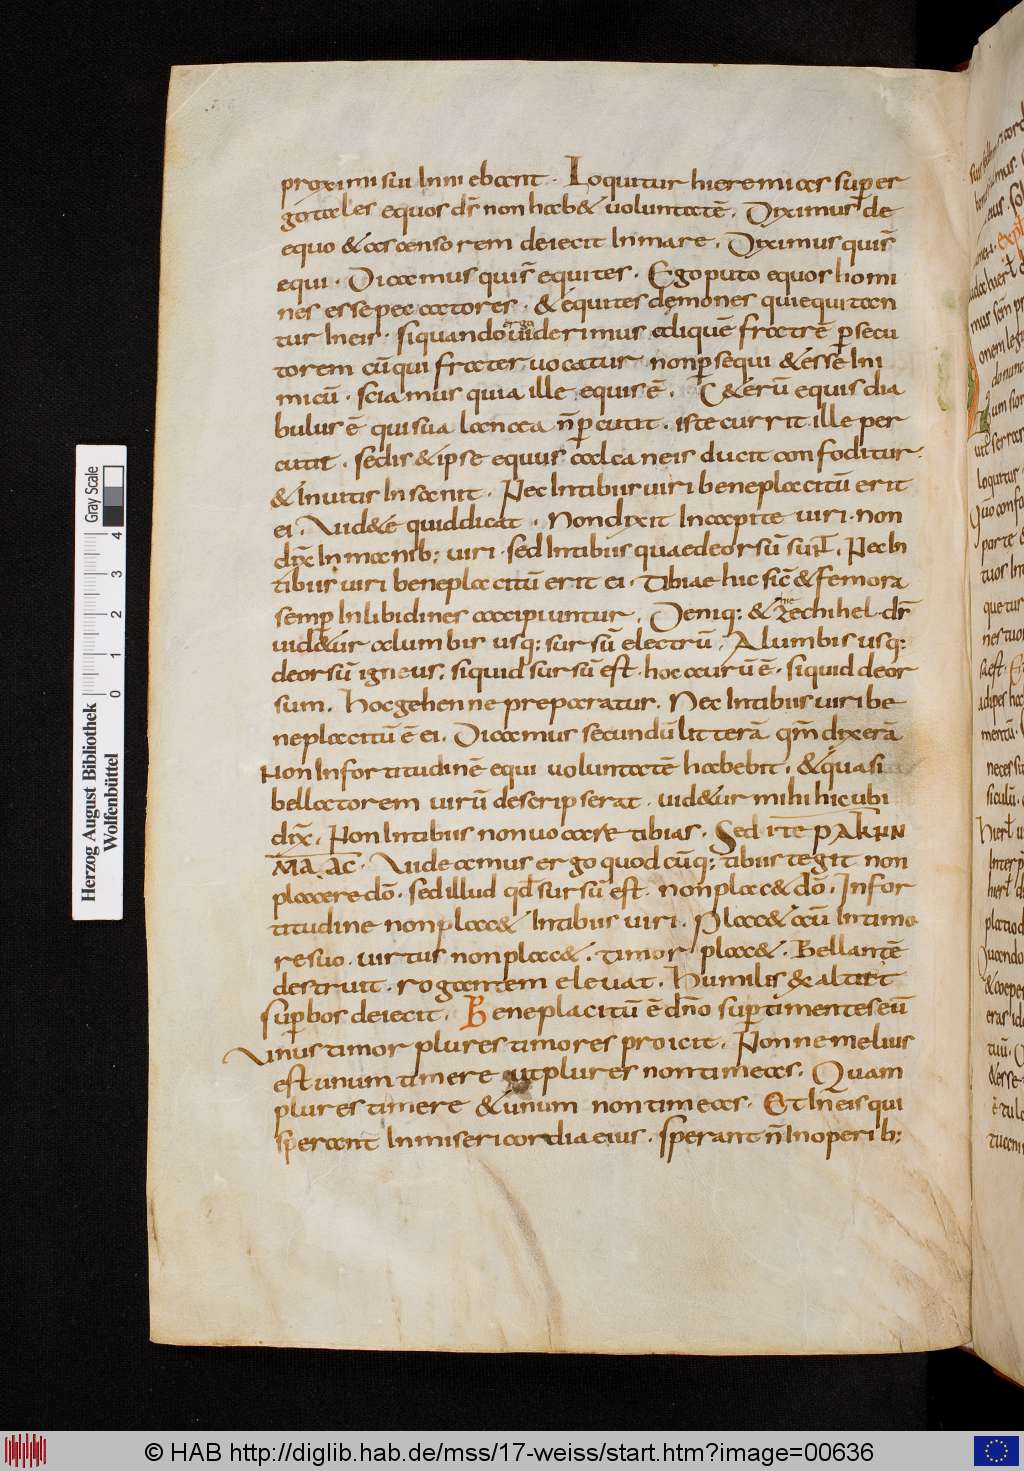 proximi sui inniebant. Loquitur hieremias super
go tales equos dr̄ non hab& voluntatē. Diximus de
equo & ascensorem deiecit in mare. Diximus qui s̄
equi. Dicamus qui s̄ equites. Ego puto equos homi
nes esse peccatores. & equites demones qui equitan
tur in eis. siquando viderimus aliquē fratrē persecu
torem cū qui frater vocatur non persequi & esse ini
micū. sciamus quia ille equis ē. C&erū equis dia
bulus ē qui sua lancea n̄ percutit. iste currit ille per
cutit. sed is & ipse equus ad calcaneis ducit confoditur
& invitus insanit. Nec in tibiis viri beneplacitū erit
ei. Vid&e quid dicat. Non dixit in capite viri. non
dix̄ in manib; viri. sed in tibiis quae deorsū sunt. Nec in
tibiis viri beneplacitū erit ei. Tibiae hic sic̄ & femora
semp in libidines accipiuntur. Deniq; & ezechihel dr̄
vid&ur a lumbis usq; sursū electrū. A lumbis usq;
deorsū igneus. siquid sursū est. hoc aurū ē. siquid deor
sum. hoc gehenne preparatur. Nec in tibiis viri be
neplacitū ē ei. Dicamus secundū litterā qm̄ dixerā
Non in fortitudinē equi voluntatē habebit. & quasi
bellatorem virū descripserat. vid&ur mihi hic ubi
dix̄. Non in tibiis non vocasse tibias. Sed ite
Videamus ergo quod cūq; tibiis tegit non
placere dō. sed illud qd̄ sursū est. non plac& dō. In for
titudine non plac& In tibiis viri. Plac& autē in timo
re suo. virtus non plac&. timor plac&. Bellantē
destruit. rogantem elevat. Humilis & altat
superbos deiecit. Beneplacitū ē dn̄o super timentes eū
Unus timor plures timores proicit. Nonne melius
est unum timere ut plures non timeas. Quam
plures timere & unum non timeas. Et in eis qui
sperant in misericordia eius. sperant n̄ in operib;
Herzog August Bibliothek
Wolfenbüttel
0 1 2 3 4
Gray Scale
© HAB http://diglib.hab.de/mss/17-weiss/start.htm?image=00636